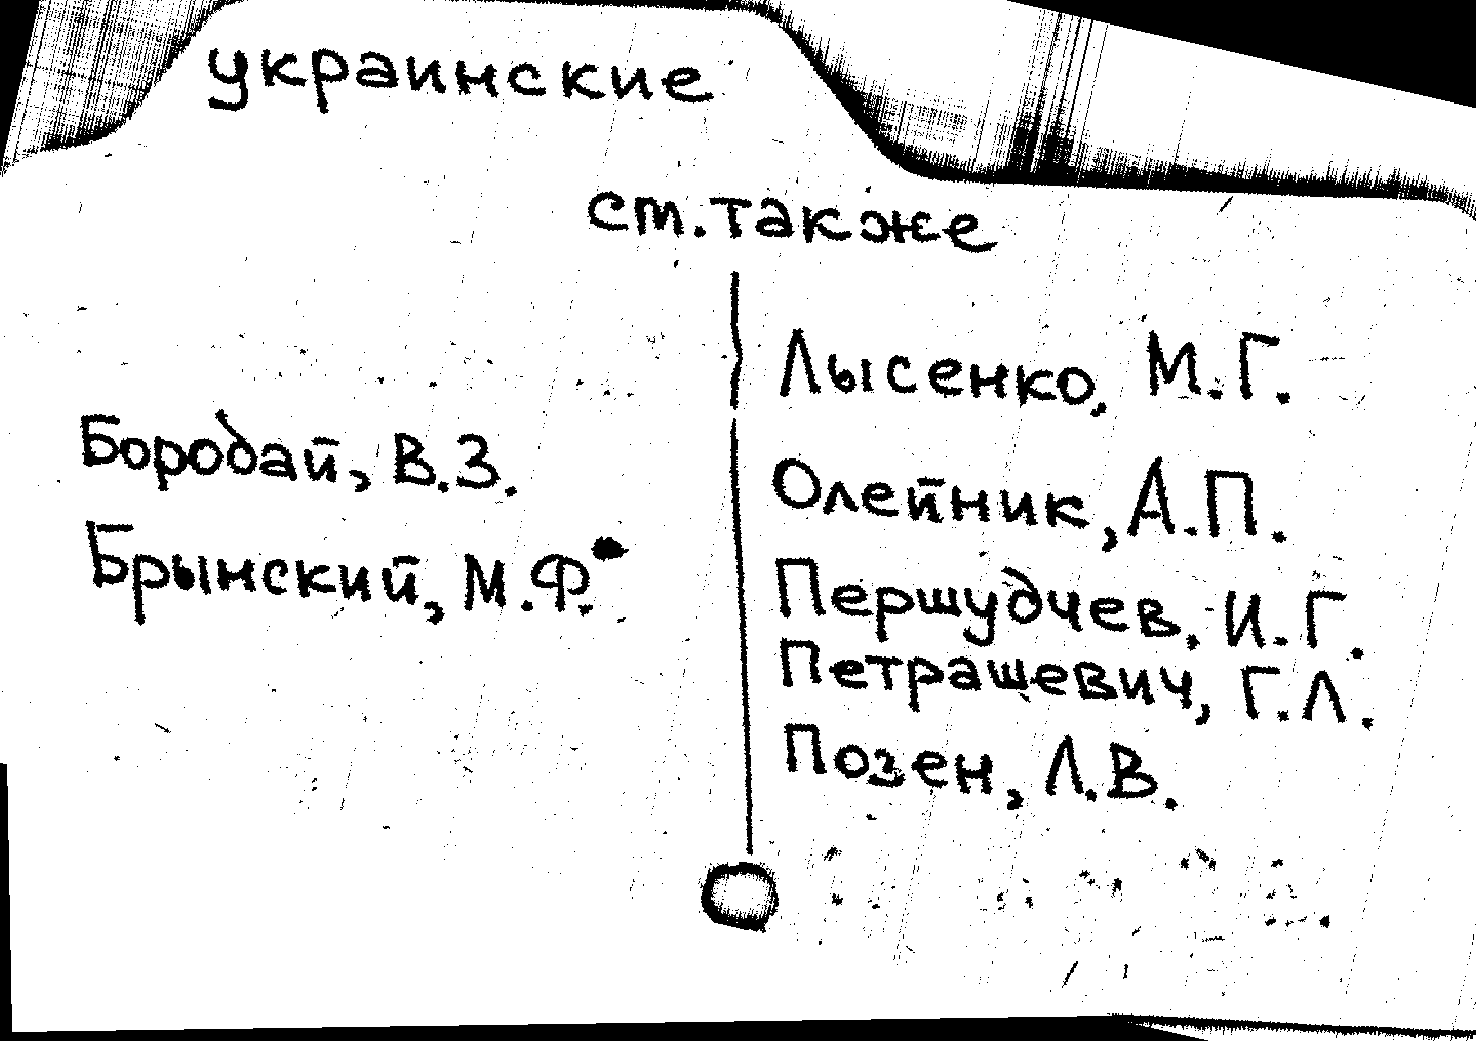 украинские
ст. также
Бородай, В.З.
Брынский, М.Ф.
Лысенко, М.Г.
Олейник, А.П.
Першудчев, И.Г.
Петрашевич, Г.Л.
Позен, Л.В.